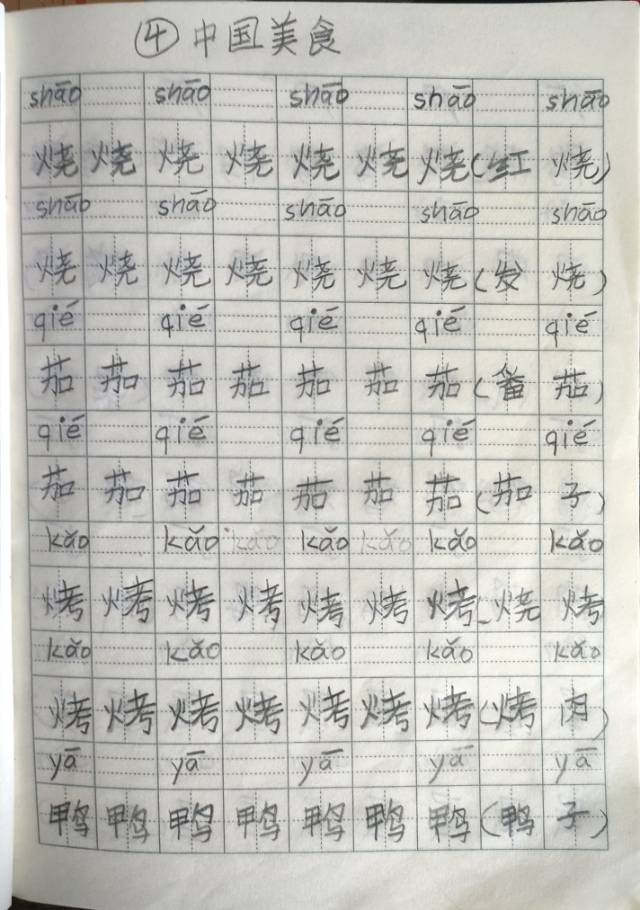 ④中国美食
shāo shāo shāo shāo shāo
烧烧烧烧烧烧烧(红烧)
shāo shāo shāo shāo shāo
烧烧烧烧烧烧烧(发烧)
qié qié qié qié qié
茄茄茄茄茄茄茄(番茄)
qié qié qié qié qié
茄茄茄茄茄茄茄(茄子)
kǎo kǎo kǎo kǎo kǎo kǎo kǎo
烤烤烤烤烤烤烤(烧烤
kǎo kǎo kǎo kǎo kǎo
烤烤烤烤烤烤烤(烤肉)
yā yā yā yā yā
鸭鸭鸭鸭鸭鸭鸭(鸭子)